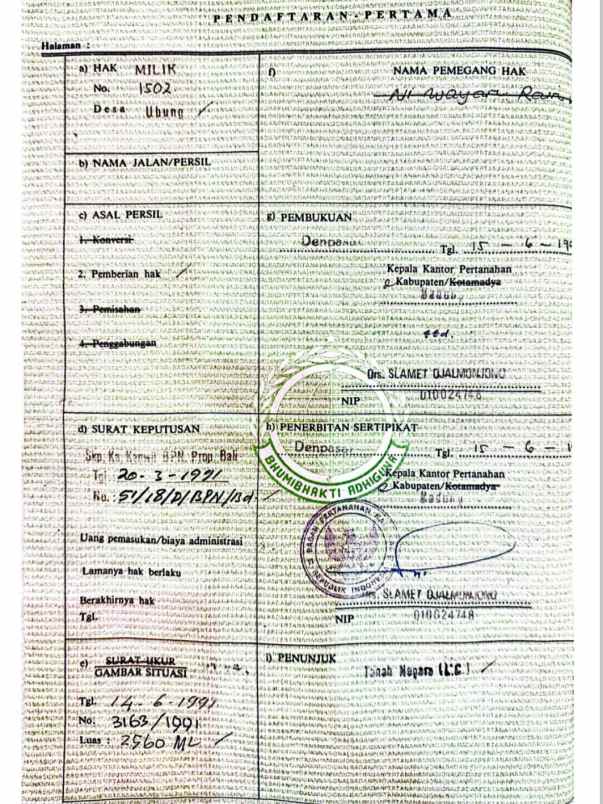 PENDAFTARAN - PERTAMA
Halaman :
a) HAK MILIK
No. 1502
Desa Ubung
b) NAMA JALAN/PERSIL
c) ASAL PERSIL
1. Konversi
2. Pemberian hak
3. Pemisahan
4. Penggabungan
d) SURAT KEPUTUSAN
Skp. Ka. Kanwil BPN. Prop. Bali
Tgl 20-3-1991
No. 51/18/D/BPN/Bd.
Uang pemasukan/biaya administrasi
Lamanya hak berlaku
Berakhirnya hak
Tgl.
e) SURAT UKUR
GAMBAR SITUASI
Tgl 14-6-1991
No. 3163/1991
Luas : 2560 M2
f) NAMA PEMEGANG HAK
Ni Wayan
g) PEMBUKUAN
Denpasar Tgl. 15 - 6 - 19
Kepala Kantor Pertanahan
Kabupaten/Kotamadya
Badung
ttd.
Drs. SLAMET DJALMONJONO
NIP 010024748
h) PENERBITAN SERTIPIKAT
Denpasar Tgl. 15 - 6 - 1
BHUMIBHAKTI ADHIGUNA
Kepala Kantor Pertanahan
Kabupaten/Kotamadya
Badung
BADAN PERTANAHAN
REPUBLIK INDONE
Drs. SLAMET DJALMONJONO
NIP 010024748
i) PENUNJUK
Tanah Negara (L.C.)